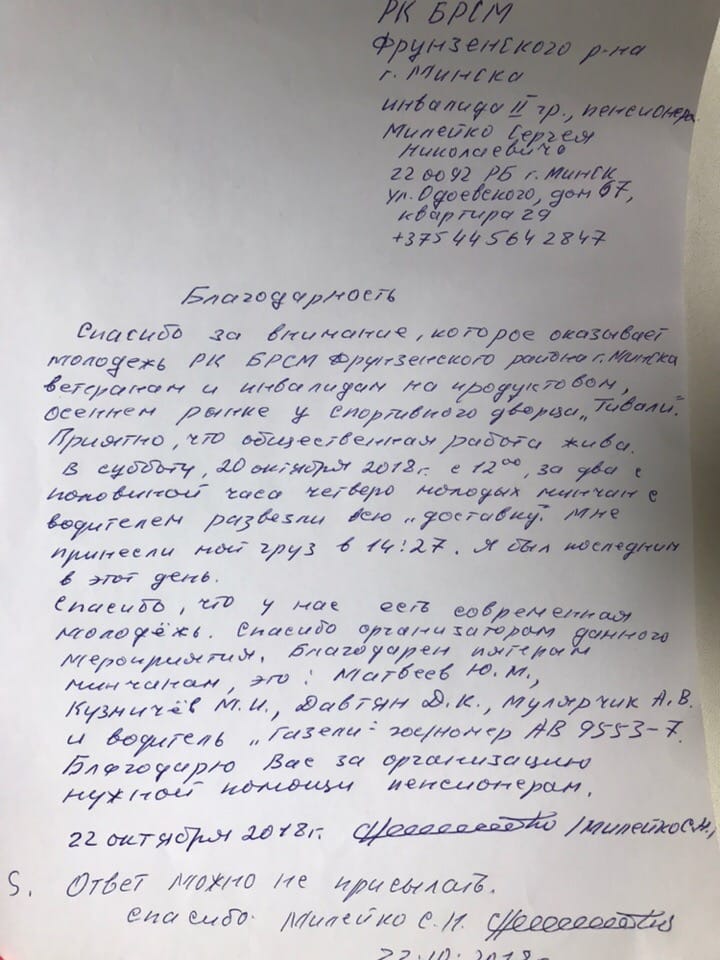 РК БРСМ
Фрунзенского р-на
г. Минска
инвалида II гр., пенсионера
Милейко Сергея
Николаевича
220092 РБ г. Минск
ул. Одоевского, дом 67,
квартира 29
+375 44 564 2847
Благодарность
Спасибо за внимание, которое оказывает
молодежь РК БРСМ Фрунзенского района г. Минска
ветеранам и инвалидам на продуктовом,
осеннем рынке у спортивного дворца „Тивали".
Приятно, что общественная работа жива.
В субботу, 20 октября 2018г. с 12⁰⁰, за два с
половиной часа четверо молодых минчан с
водителем развезли всю „доставку". Мне
принесли мой груз в 14:27. Я был последним
в этот день.
Спасибо, что у нас есть современная
молодёжь. Спасибо организаторам данного
мероприятия. Благодарен пятерым
минчанам, это: Матвеев Ю.М.,
Кузничёв М.И., Давтян Д.К., Мулярчик А.В.
и водитель „Газели" - номер АВ 9553-7.
Благодарю Вас за организацию
нужной помощи пенсионерам.
22 октября 2018г. /Милейко С.Н./
S. Ответ можно не присылать.
Спасибо. Милейко С.Н.
22.10.2018г.